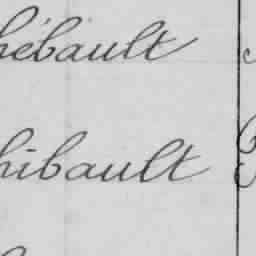 hébault
hibault